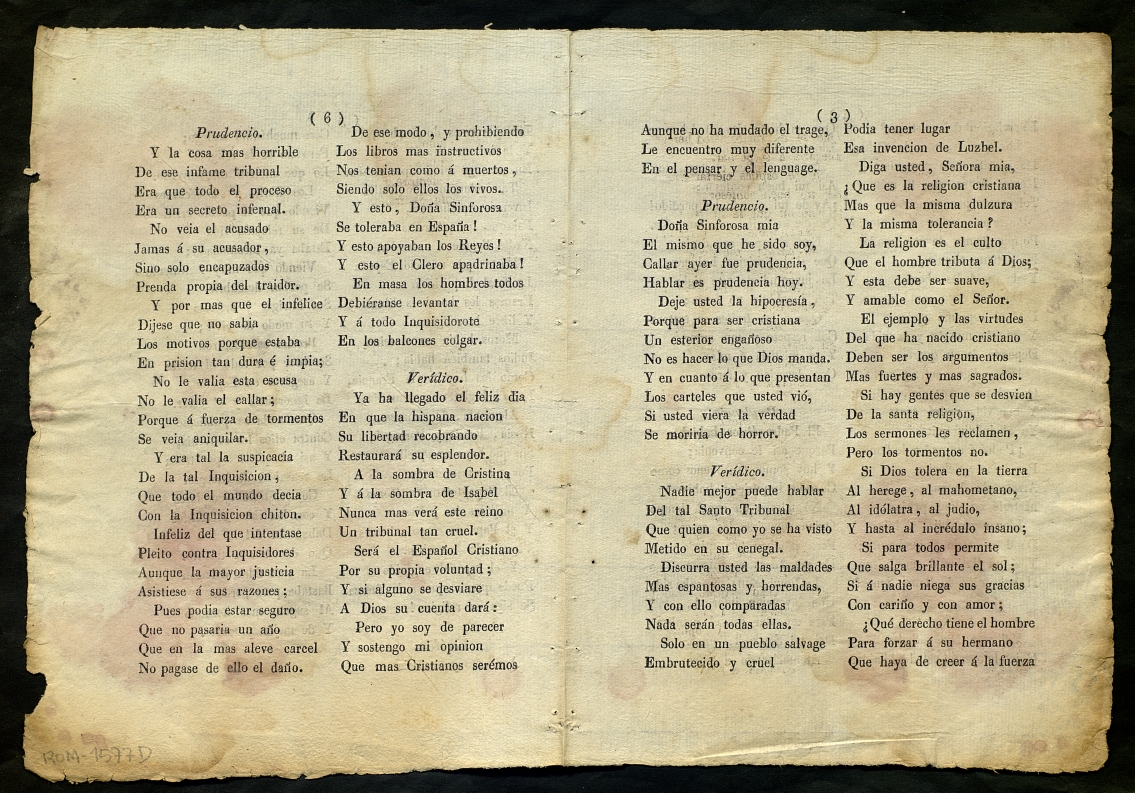 ( 6 )
Prudencio.
Y la cosa mas horrible
De ese infame tribunal
Era que todo el proceso
Era un secreto infernal.
No veia el acusado
Jamas á su acusador,
Sino solo encapuzados
Prenda propia del traidor.
Y por mas que el infelice
Dijese que no sabia
Los motivos porque estaba
En prision tan dura é impia;
No le valia esta escusa
No le valia el callar;
Porque á fuerza de tormentos
Se veia aniquilar.
Y era tal la suspicacia
De la tal Inquisicion,
Que todo el mundo decia
Con la Inquisicion chiton.
Infeliz del que intentase
Pleito contra Inquisidores
Aunque la mayor justicia
Asistiese á sus razones;
Pues podia estar seguro
Que no pasaria un año
Que en la mas aleve carcel
No pagase de ello el daño.
De ese modo, y prohibiendo
Los libros mas instructivos
Nos tenian como á muertos,
Siendo solo ellos los vivos.
Y esto, Doña Sinforosa
Se toleraba en España!
Y esto apoyaban los Reyes!
Y esto el Clero apadrinaba!
En masa los hombres todos
Debiéranse levantar
Y á todo Inquisidorote
En los balcones colgar.
Verídico.
Ya ha llegado el feliz dia
En que la hispana nacion
Su libertad recobrando
Restaurará su esplendor.
A la sombra de Cristina
Y á la sombra de Isabel
Nunca mas verá este reino
Un tribunal tan cruel.
Será el Español Cristiano
Por su propia voluntad;
Y si alguno se desviare
A Dios su cuenta dará:
Pero yo soy de parecer
Y sostengo mi opinion
Que mas Cristianos serémos
( 3 )
Aunque no ha mudado el trage,
Le encuentro muy diferente
En el pensar y el lenguage.
Prudencio.
Doña Sinforosa mia
El mismo que he sido soy,
Callar ayer fue prudencia,
Hablar es prudencia hoy.
Deje usted la hipocresía,
Porque para ser cristiana
Un esterior engañoso
No es hacer lo que Dios manda.
Y en cuanto á lo que presentan
Los carteles que usted vió,
Si usted viera la verdad
Se moriria de horror.
Verídico.
Nadie mejor puede hablar
Del tal Santo Tribunal
Que quien como yo se ha visto
Metido en su cenegal.
Discurra usted las maldades
Mas espantosas y horrendas,
Y con ello comparadas
Nada serán todas ellas.
Solo en un pueblo salvage
Embrutecido y cruel
Podia tener lugar
Esa invencion de Luzbel.
Diga usted, Señora mia,
¿Que es la religion cristiana
Mas que la misma dulzura
Y la misma tolerancia?
La religion es el culto
Que el hombre tributa á Dios;
Y esta debe ser suave,
Y amable como el Señor.
El ejemplo y las virtudes
Del que ha nacido cristiano
Deben ser los argumentos
Mas fuertes y mas sagrados.
Si hay gentes que se desvien
De la santa religion,
Los sermones les reclamen,
Pero los tormentos no.
Si Dios tolera en la tierra
Al herege, al mahometano,
Al idólatra, al judio,
Y hasta al incrédulo insano;
Si para todos permite
Que salga brillante el sol;
Si á nadie niega sus gracias
Con cariño y con amor;
¿Qué derecho tiene el hombre
Para forzar á su hermano
Que haya de creer á la fuerza
ROM-1577D